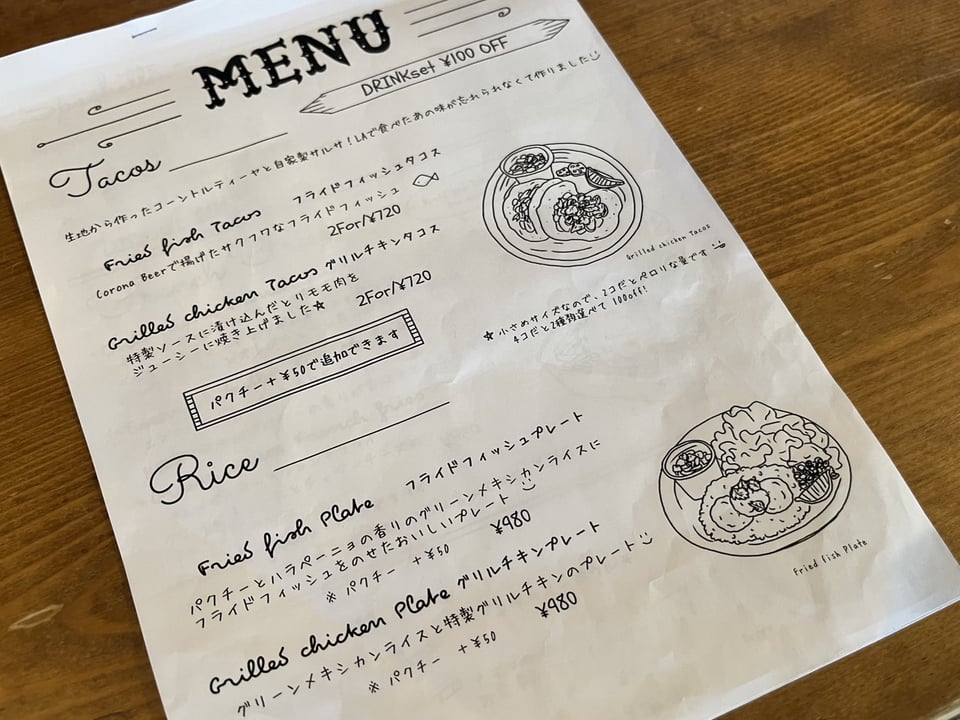 MENU
DRINKset ¥100 OFF
Tacos
生地から作ったコーントルティーヤと自家製サルサ!LAで食べたあの味が忘れられなくて作りました
Fried fish Tacos フライドフィッシュタコス
Corona Beerで揚げたサクフワなフライドフィッシュ
2For/¥720
Grilled chicken Tacos グリルチキンタコス
特製ソースに漬け込んだとりモモ肉を
ジューシーに焼き上げました★
2For/¥720
パクチー+¥50で追加できます
Grilled chicken Tacos
★小さめサイズなので、2コだとペロリな量です
4コだと2種類選べて100off!
Rice
Fried fish Plate フライドフィッシュプレート
パクチーとハラペーニョの香りのグリーンメキシカンライスに
フライドフィッシュをのせたおいしいプレート
※パクチー +¥50
¥980
Grilled chicken Plate グリルチキンプレート
グリーンメキシカンライスと特製グリルチキンのプレート
※パクチー +¥50
¥980
Fried fish Plate